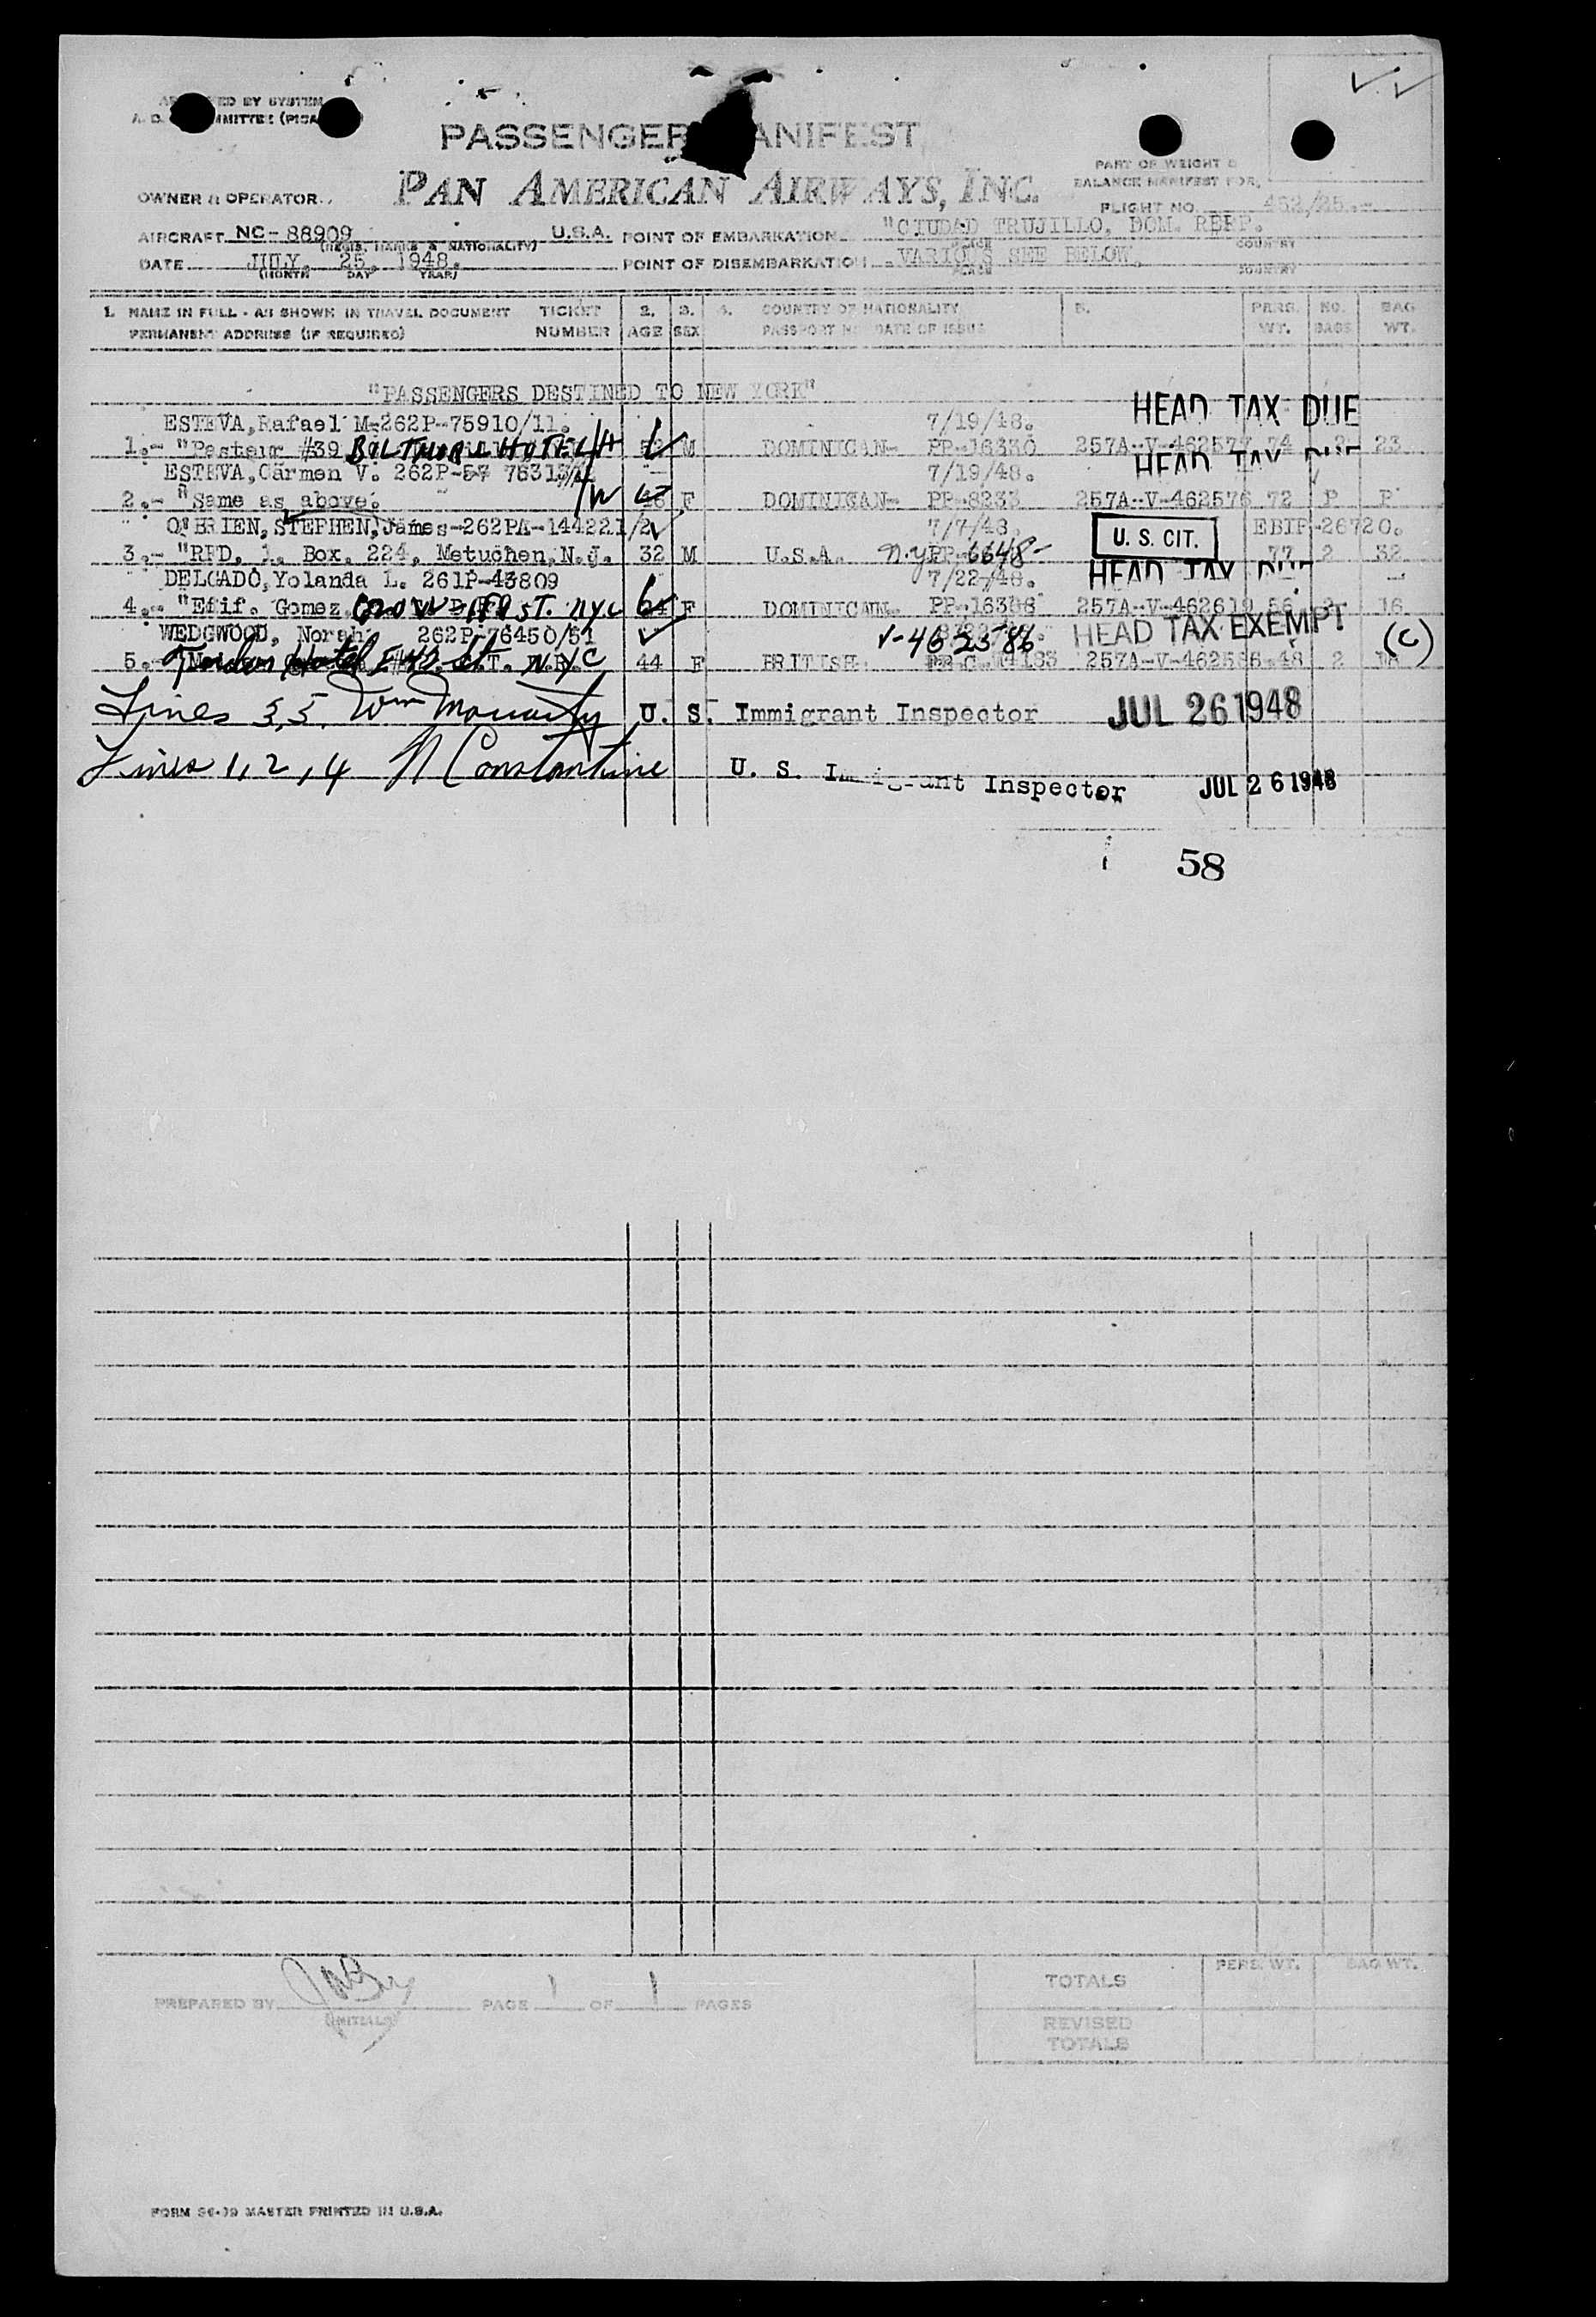 PASSENGER MANIFEST
PAN AMERICAN AIRWAYS, INC.
PART OF WEIGHT &
BALANCE MANIFEST FOR,
OWNER OR OPERATOR
FLIGHT NO. 452/25.-
AIRCRAFT NC-88909 U.S.A. POINT OF EMBARKATION "CIUDAD TRUJILLO, DOM. REPP.
(REGIS. MARKS & NATIONALITY) PLACE COUNTRY
DATE JULY, 25, 1948. POINT OF DISEMBARKATION VARIOUS SEE BELOW.
(MONTH DAY YEAR) PLACE COUNTRY
1. NAME IN FULL - AS SHOWN IN TRAVEL DOCUMENT TICKET 2. 3. 4. COUNTRY OF NATIONALITY 5. PERS. NO. BAG
PERMANENT ADDRESS (IF REQUIRED) NUMBER AGE SEX PASSPORT NO DATE OF ISSUE WT. BAGS WT.
"PASSENGERS DESTINED TO NEW YORK"
HEAD TAX DUE
ESTEVA, Rafael M-262P-75910/11. 7/19/48.
1.- "Pasteur #39 M DOMINICAN- PP-16330 257A-V-462577 74 2 23
HEAD TAX DUE
ESTEVA, Carmen V. 262P- 7/19/48.
2.- "Same as above. F DOMINICAN- PP-8233 257A-V-462576 72 P P
O'BRIEN, STEPHEN, James-262PA-144221/2 7/7/48. U. S. CIT. EBIF-26720.
3.- "RFD, 1. Box. 224, Metuchen, N.J. 32 M U.S.A. N.Y. PP- 6648- 77 2 32
HEAD TAX DUE
DELGADO, Yolanda L. 261P-43809 7/22/48.
4.- "Efif. Gomez. ST. NYC F DOMINICAN. PP-16386 257A-V-462619 56 2 16
WEDGWOOD, Norah. 262P-76450/51 V-462586 HEAD TAX EXEMPT (C)
5.- Hotel E 42 St. N.Y.C 44 F BRITISH. 257A-V-462586 48 2
Lines 3, 5. Wm Moriarty U. S. Immigrant Inspector JUL 26 1948
Lines 1, 2, 4 N Constantine U. S. Immigrant Inspector JUL 26 1948
58
PREPARED BY PAGE 1 OF 1 PAGES
(INITIALS)
TOTALS PERS. WT. BAG WT.
REVISED
TOTALS
FORM MASTER PRINTED IN U.S.A.